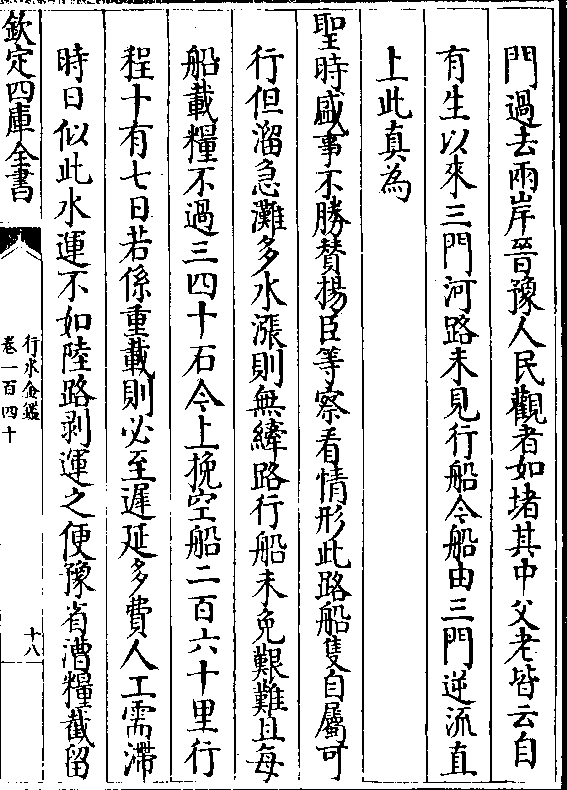 門過去兩岸晉豫人民觀者如堵其中父老皆云自
有生以來三門河路未見行船今船由三門逆流直
上此真為
聖時盛事不勝賛揚臣等察看情形此路船隻自屬可
行但溜急灘多水漲則無縴路行船未免艱難且每
船載糧不過三四十石今上挽空船二百六十里行
程十有七日若係重載則必至遲延多費人工需滯
時日似此水運不如陸路剥運之便豫省漕糧截留
欽定四庫全書
行水金鑑
卷一百四十
十八